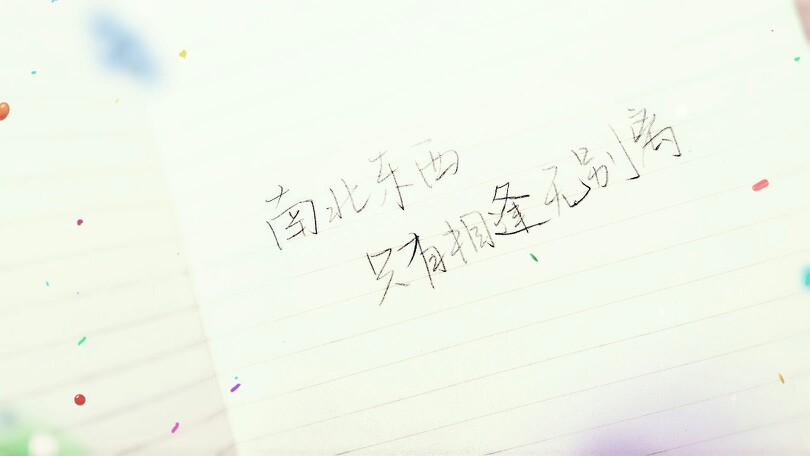 南北东西
只有相逢无别离